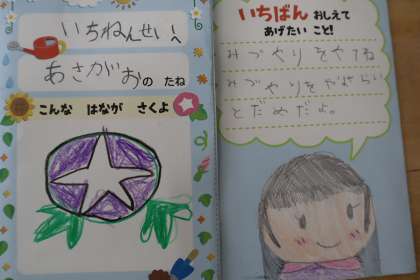 いちねんせいへ
あさがおの たね
こんな はなが さくよ
いちばん おしえて
あげたい こと!
みづやりをやてね
みづやりをやばらい
とだめだよ。